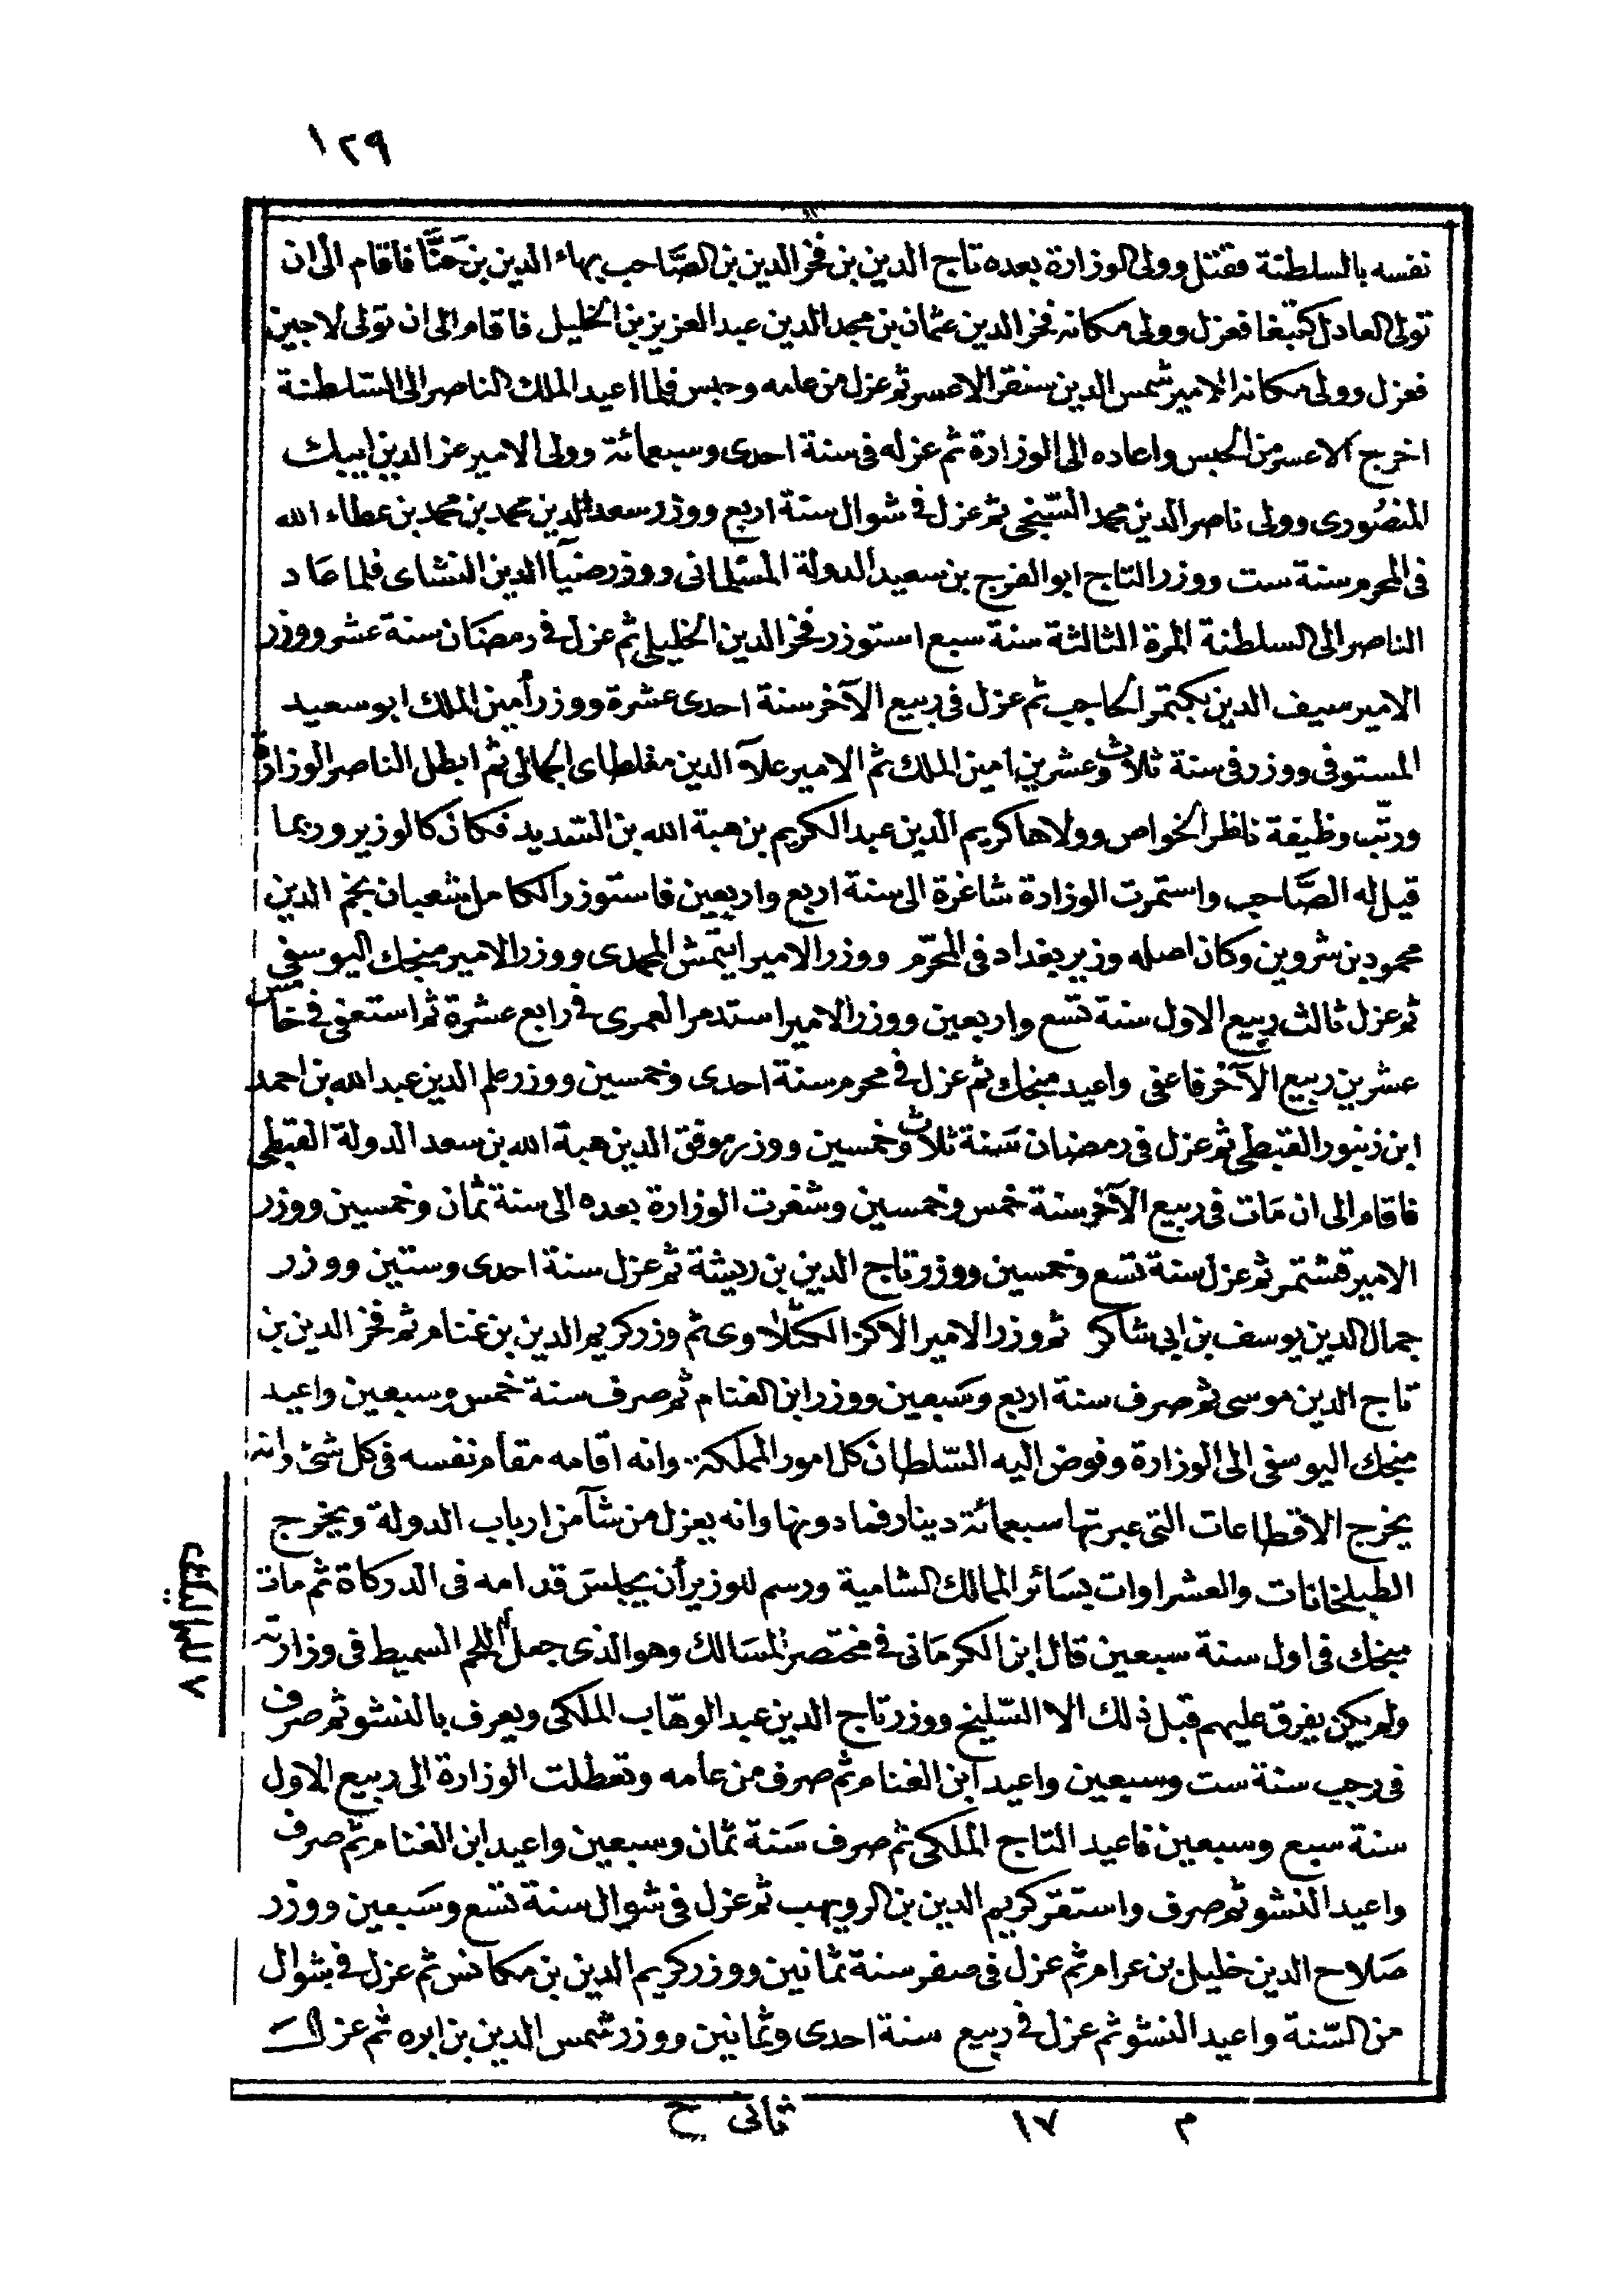 ١٢٩
نفسه بالسلطنة فقتل وولى الوزارة بعده تاج الدين بن فخر الدين بن الصَّاحب بهاء الدين بن حَنَّا فاقام الى ان
تولى العادل كتبغا فعزل وولى مكانه فخر الدين عثمان بن مجد الدين عبد العزيز بن الخليل فاقام الى ان تولى لاجين
فعزل وولى مكانه الامير شمس الدين سنقر الاعسر ثم عزل من عامه وحبس فلما اعيد الملك الناصر الى السّلطنة
اخرج الاعسر من الحبس واعاده الى الوزارة ثم عزله فى سنة احدى وسبعمائة وولى الامير عز الدين ايبك
المنصُورى وولى ناصر الدين محمد الشيخى ثم عزل فى شوال سنة اربع ووزر سعد الدين محمد بن محمد بن عطاء الله
فى المحرم سنة ست ووزر التاج ابو الفرج بن سعيد الدولة المسّلمانى ووزر ضيآ الدين النشاى فلما عَاد
الناصر الى السلطنة المرة الثالثة سنة سبع استوزر فخر الدين الخليلى ثم عزل فى رمضان سنة عشر ووزر
الامير سيف الدين بكتمر الحاجب ثم عزل فى ربيع الآخر سنة احدى عشرة ووزر أمين الملك ابو سعيد
المستوفى ووزر فى سنة ثلاث وعشرين امين الملك ثم الامير علآ الدين مغلطاى الجمالى ثم ابطل الناصر الوزارة
ورتّب وظيفة ناظر الخواص وولاها كريم الدين عبد الكريم بن هبة الله بن السّديد فكان كالوزير وربما
قيل له الصَّاحب واستمرت الوزارة شاغرة الى سنة اربع واربعين فاستوزر الكامل شعبان نجم الدين
محمود بن شروين وكان اصله وزير بغداد فى المحرّم ووزر الامير ايتمش المحمدى ووزر الامير منجك اليوسفى
ثم عزل ثالث ربيع الاول سنة تسع واربعين ووزر الامير استدمر العمرى فى رابع عشرة ثم استعفى فى خامس
عشرين ربيع الآخر فاعفى واعيد منجك ثم عزل فى محرم سنة احدى وخمسين ووزر علم الدين عبد الله بن احمد
ابن زنبور القبطى ثم عزل فى رمضان سَنة ثلاث وخمسين ووزر موفق الدين هبة الله بن سعد الدولة القبطى
فاقام الى ان مَات فى ربيع الآخر سنة خمس وخمسين وشغرت الوزارة بعده الى سنة ثمان وخمسين ووزر
الامير قشتمر ثم عزل سنة تسع وخمسين ووزر تاج الدين بن ريشة ثم عزل سنة احدى وستين ووزر
جمال الدين يوسف بن ابى شاكر ثم وزر الامير الاكز الكثلاوى ثم وزر كريم الدين بن غنام ثم فخر الدين بن
تاج الدين موسى ثم صرف سنة اربع وسَبعين ووزر ابن الغنام ثم صرف سنة خمس وسبعين واعيد
منجك اليوسفى الى الوزارة وفوض اليه السّلطان كل امور المملكة وانه اقامه مقام نفسه فى كل شئ وانه
يخرج الاقطاعات التى عبرتها سبعمائة دينار فما دونها وانه يعزل من شآ من ارباب الدولة ويخرج
الطبلخانات والعشراوات بسَائر الممالك الشامية ورسم للوزير أن يجلسَ قدامه فى الدركاة ثم مات
منجك فى اول سنة سبعين قال ابن الكرمانى فى مختصر المسَالك وهو الذى جعل اللحم السميط فى وزارته
ولم يكن يفرق عليهم قبل ذلك الا السّليخ ووزر تاج الدين عبد الوهّاب الملكى ويعرف بالنشو ثم صرف
فى رجب سنة ست وسبعين واعيد ابن الغنام ثم صرف من عامه وتعطلت الوزارة الى ربيع الاول
سنة سبع وسبعين فاعيد التاج الملكى ثم صرف سَنة ثمان وسبعين واعيد ابن الغنام ثم صرف
واعيد النشو ثم صرف واستقر كريم الدين بن الرويهب ثم عزل فى شوال سنة تسع وسَبعين ووزر
صَلاح الدين خليل بن عرام ثم عزل فى صفر سنة ثمانين ووزر كريم الدين بن مكانس ثم عزل فى شوال
من السّنة واعيد النشو ثم عزل فى ربيع سنة احدى وثمانين ووزر شمس الدين بن ابره ثم عزل
٧ للمماليك
م ١٧ ثانى ح